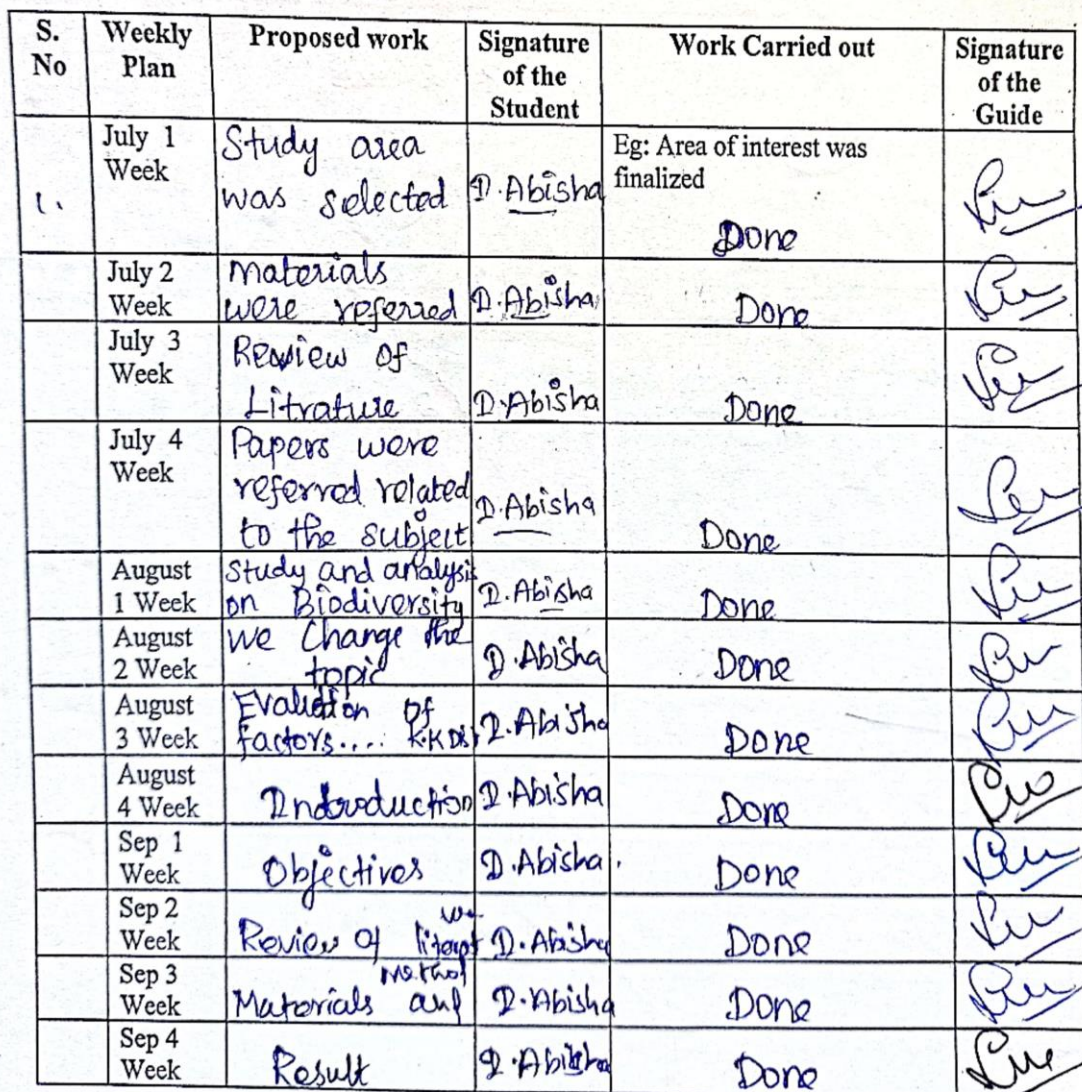 S. No Weekly Plan Proposed work Signature of the Student Work Carried out Signature of the Guide
1. July 1 Week Study area was selected D.Abisha Eg: Area of interest was finalized Done
July 2 Week Materials were referred D.Abisha Done
July 3 Week Review of Litrature D.Abisha Done
July 4 Week Papers were referred related to the subject D.Abisha Done
August 1 Week Study and analysis on Biodiversity D.Abisha Done
August 2 Week we Change the topic D.Abisha Done
August 3 Week Evaluation of factors.... D.Abisha Done
August 4 Week Introduction D.Abisha Done
Sep 1 Week Objectives D.Abisha. Done
Sep 2 Week Review of D.Abisha Done
Sep 3 Week Materials and D.Abisha Done
Sep 4 Week Result D.Abisha Done